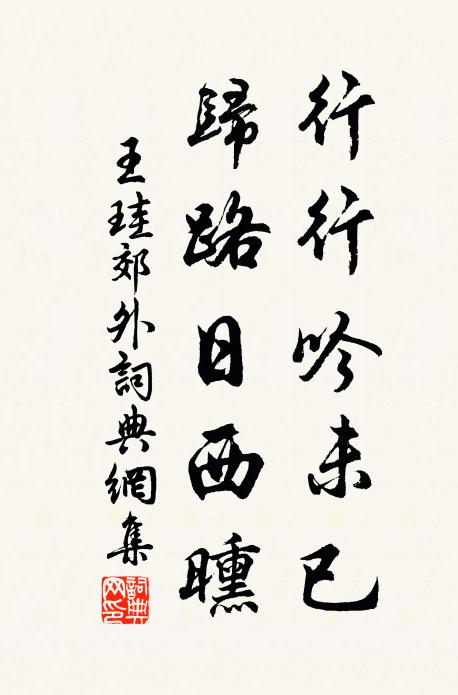 行行吟未已
歸路日西曛
王珪郊外詞典網集
詞典网印